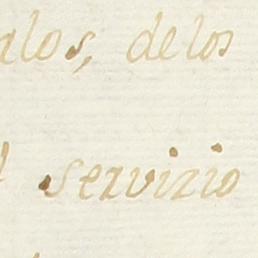 alos, de los
servizio